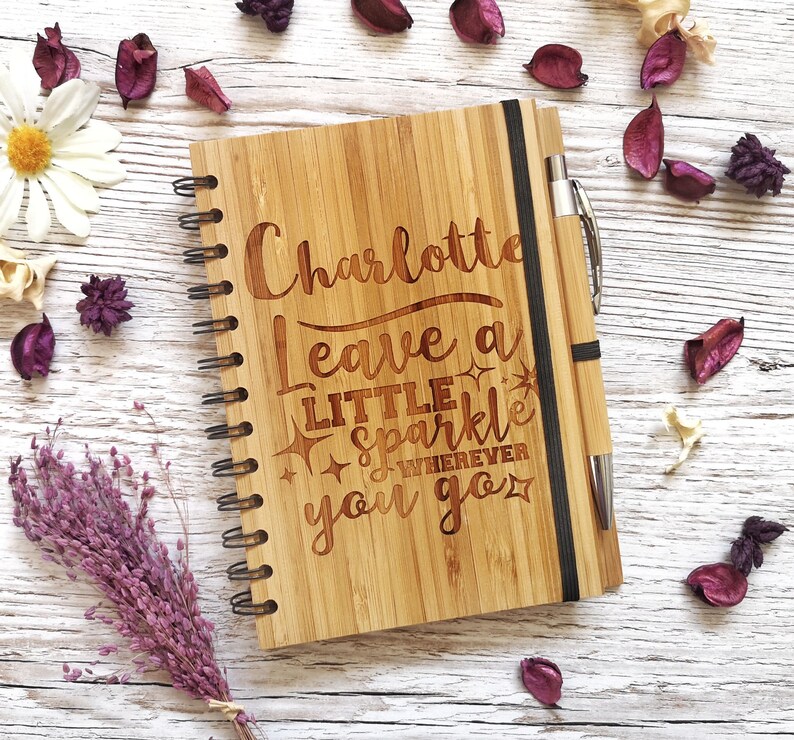 Charlotte
Leave a
LITTLE
sparkle
WHEREVER
you go